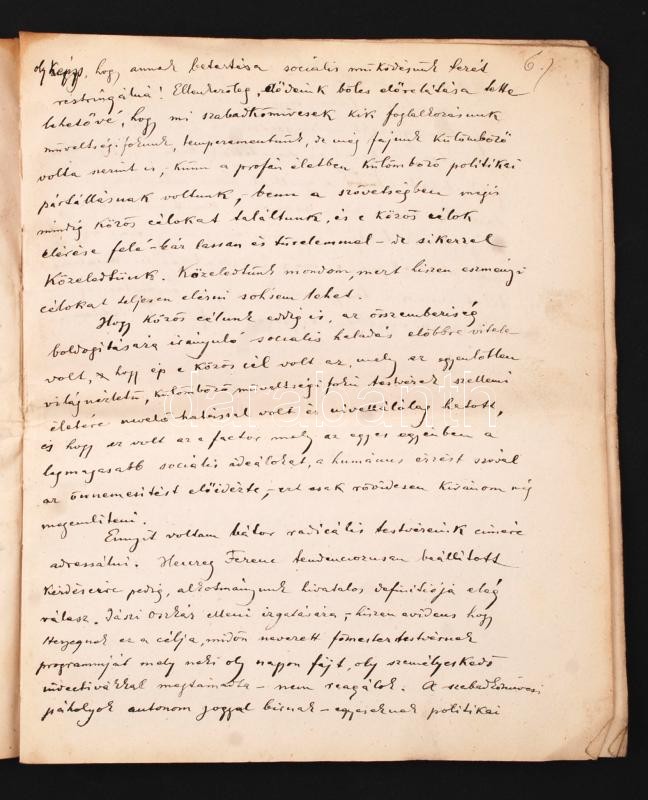 6.)
oly képp, hogy annak betartása sociális működésünk terét
restringálná! Ellenkezőleg, elődeink bölcs előrelátása tette
lehetővé, hogy mi szabadkőművesek kik foglalkozásunk
műveltségi fokunk, temperamentumunk, de még fajunk különböző
volta szerint is, – künn a profán életben külömböző politikai
pártállásnak voltunk, – benn a szövetségben mégis
mindig közös célokat találtunk, és e közös célok
elérése felé – bár lassan és türelemmel – de sikerrel
közeledtünk. Közeledtünk mondom, mert hiszen eszményi
célokat teljesen elérni sohsem lehet.
Hogy közös célunk eddig is, az összemberiség
boldogítására irányuló sociális haladás előbbre vitele
volt, & hogy ép e közös cél volt az, mely az egyentetlen
világnézletű, külömböző műveltségi fokú testvérek szellemi
életére nevelő hatással volt és nivellálólag hatott,
és hogy ez volt az a factor mely az egyes egyénben a
legmagasabb sociális ideálokat, a humánus érzést szóval
az önnemesítést előidézte, – ezt csak rövidesen kívánom még
megemlíteni.
Ennyit voltam bátor radicális testvéreink címére
adressálni. Herczeg Ferenc tendenciozusan beállított
kérdésére pedig, alkotmányunk hivatalos definitiója elég
válasz. Jászi Oszkár elleni izgatására, – hiszen evidens hogy
Herczegnek ez a célja, midőn nevezett főmester testvérnek
programmját mely neki oly nagyon fájt, oly személyeskedő
invectivákkal megtámadta – nem reagálok. A szabadkőművesi
páholyok autonom joggal bírnak – egyeseknek politikai
darabanth